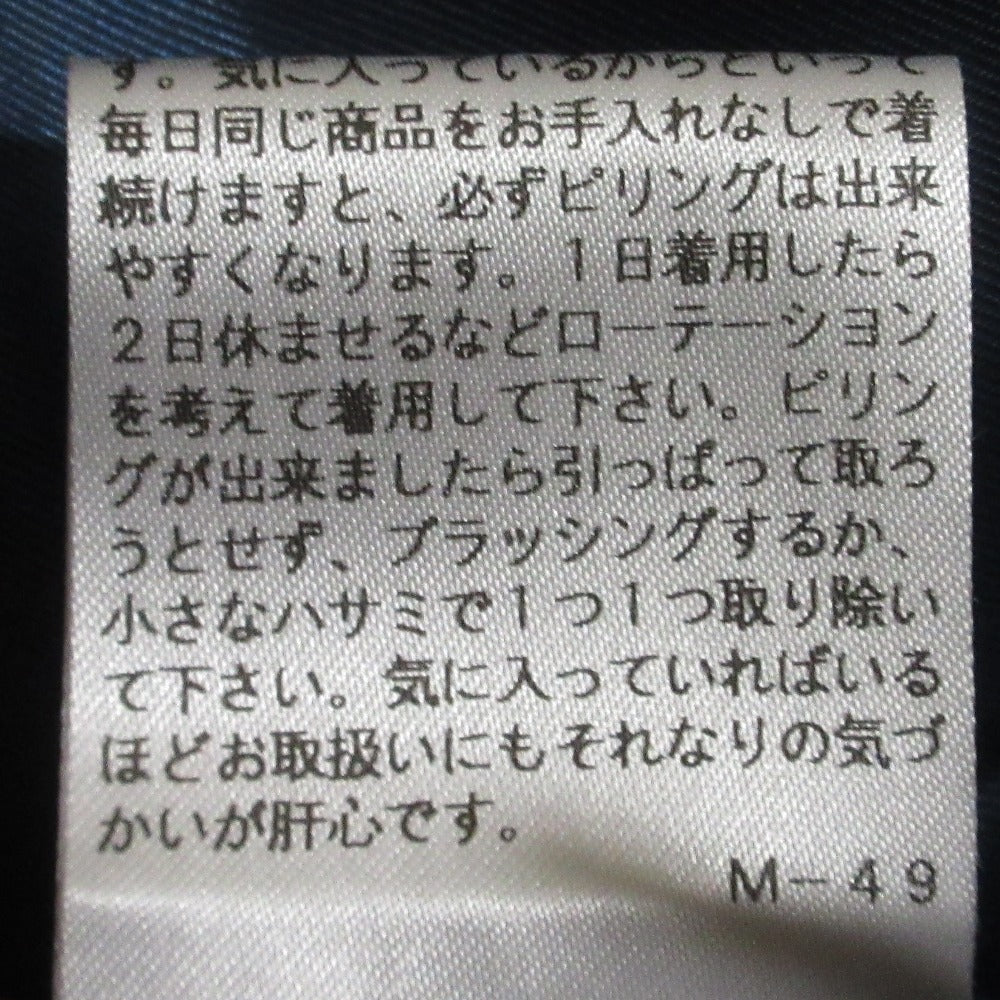 す。気に入っているからといって
毎日同じ商品をお手入れなしで着
続けますと、必ずピリングは出来
やすくなります。1日着用したら
2日休ませるなどローテーション
を考えて着用して下さい。ピリン
グが出来ましたら引っぱって取ろ
うとせず、ブラッシングするか、
小さなハサミで1つ1つ取り除い
て下さい。気に入っていればいる
ほどお取扱いにもそれなりの気づ
かいが肝心です。
M-49